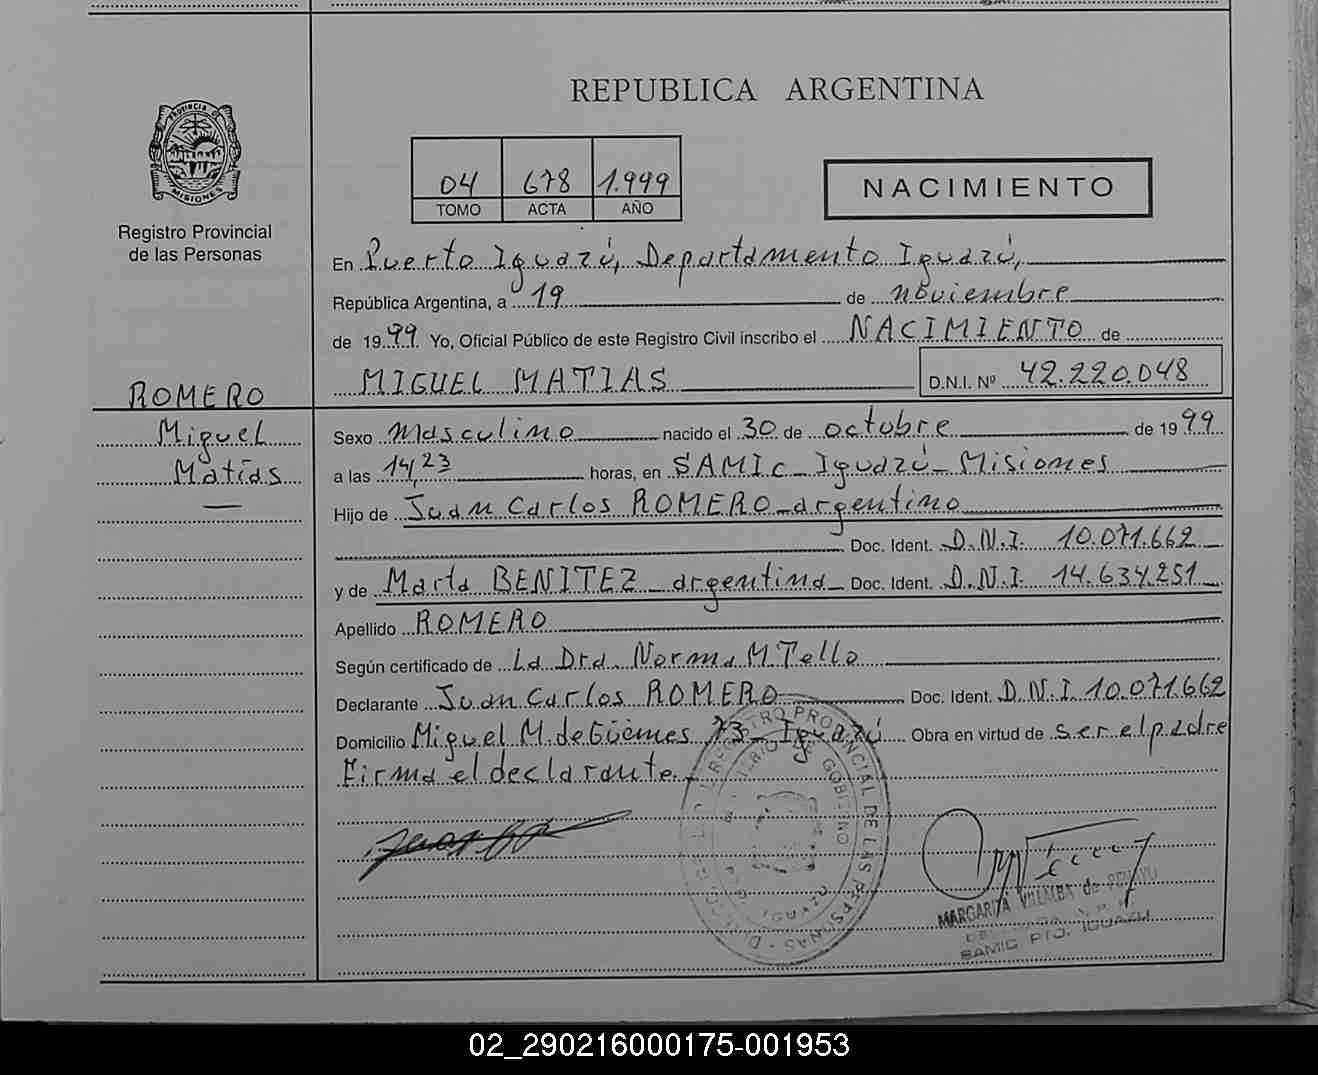 REPUBLICA ARGENTINA
PROVINCIA DE
MISIONES
Registro Provincial
de las Personas
04 678 1.999
TOMO ACTA AÑO
NACIMIENTO
En Puerto Iguazú, Departamento Iguazú,
República Argentina, a 19 de noviembre
de 1999 Yo, Oficial Público de este Registro Civil inscribo el NACIMIENTO de
MIGUEL MATIAS D.N.I. Nº 42.220.048
ROMERO
Miguel
Matías
Sexo masculino nacido el 30 de octubre de 1999
a las 14,23 horas, en SAMIc - Iguazú - Misiones
Hijo de Juan Carlos ROMERO - argentino
Doc. Ident. D.N.I. 10.071.662
y de Marta BENITEZ - argentina - Doc. Ident. D.N.I 14.634.251
Apellido ROMERO
Según certificado de La Dra. Norma M Tello
Declarante Juan Carlos ROMERO Doc. Ident. D.N.I. 10.071.662
Domicilio Miguel M. de Güemes 73 - Iguazú Obra en virtud de ser el padre
Firma el declarante.
REGISTRO PROVINCIAL DE LAS PERSONAS
GOBIERNO
MARGARITA VILLALBA de
SAMIC PTO. IGUAZU
02_290216000175-001953